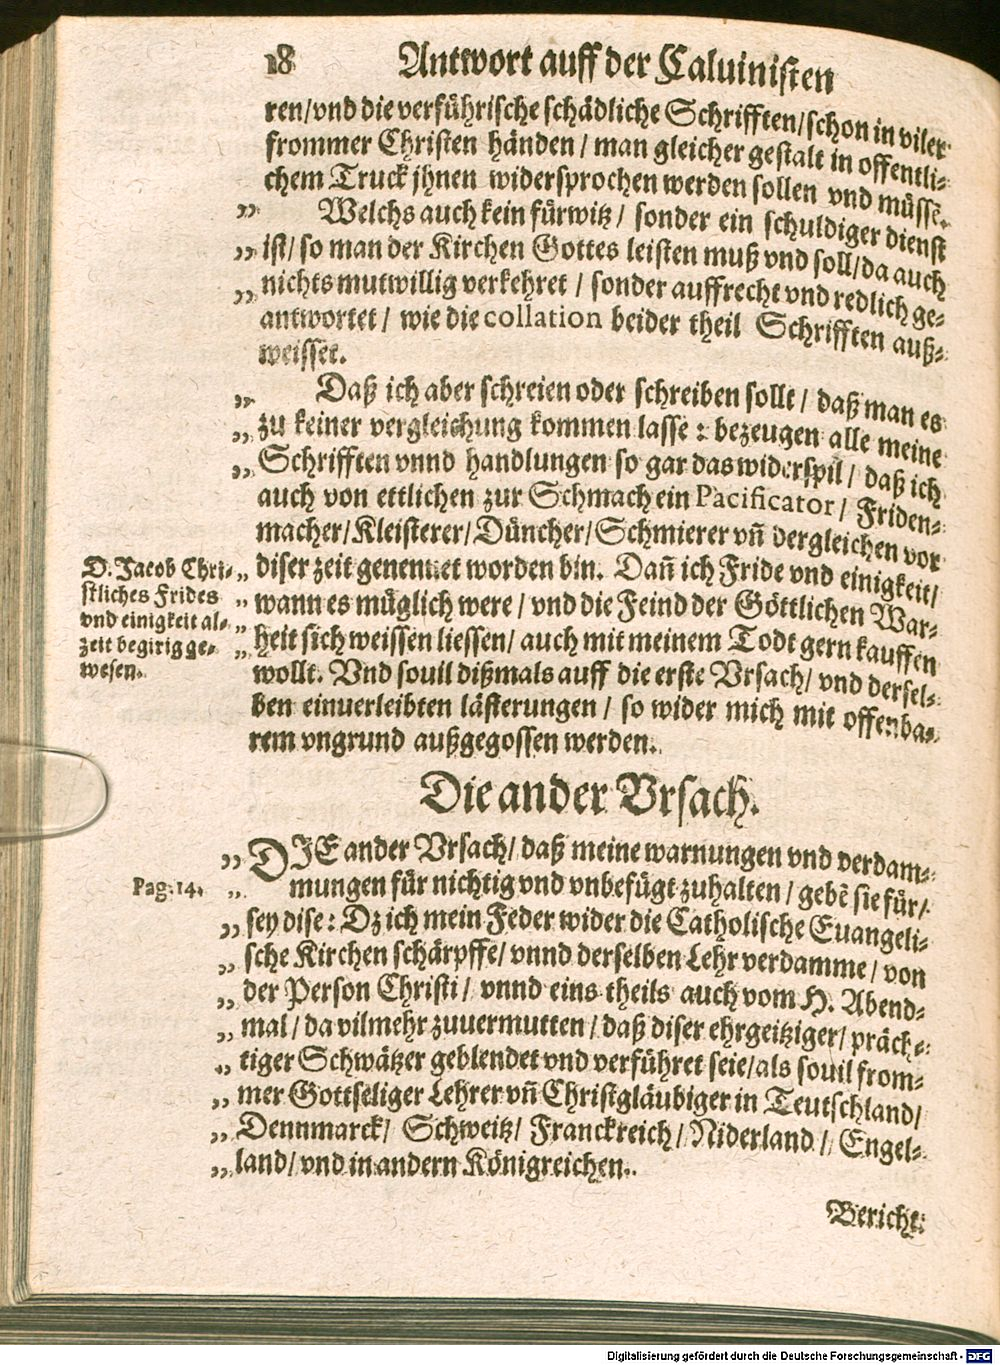 18 Antwort auff der Caluinisten
ren/vnd die verführische schädliche Schrifften/schon in viler
frommer Christen händen / man gleicher gestalt in offentli-
chem Truck jhnen widersprochen werden sollen vnd müssẽ.
„ Welchs auch kein fürwitz / sonder ein schuldiger dienst
„ ist/ so man der Kirchen Gottes leisten muß vnd soll/da auch
„ nichts mutwillig verkehret / sonder auffrecht vnd redlich ge-
antwortet / wie die collation beider theil Schrifften auß-
weisset.
„ Daß ich aber schreien oder schreiben sollt / daß man es
„ zu keiner vergleichung kommen lasse : bezeugen alle meine
„ Schrifften vnnd handlungen so gar das widerspil / daß ich
auch von ettlichen zur Schmach ein Pacificator / Friden-
macher/Kleisterer/Düncher/Schmierer vñ dergleichen vor
„ diser zeit genennet worden bin. Dañ ich Fride vnd einigkeit/
„ wann es müglich were / vnd die Feind der Göttlichen War-
„ heit sich weissen liessen/ auch mit meinem Todt gern kauffen
„ wollt. Vnd souil dißmals auff die erste Vrsach/ vnd dersel-
ben einuerleibten lästerungen / so wider mich mit offenba-
rem vngrund außgegossen werden.
D. Jacob Chri-
stliches Frides
vnd einigkeit al-
zeit begirig ge-
wesen.
Die ander Vrsach.
„ DIE ander Vrsach/ daß meine warnungen vnd verdam-
Pag. 14. „ mungen für nichtig vnd vnbefügt zuhalten / gebẽ sie für/
„ sey dise : Dz ich mein Feder wider die Catholische Euangeli-
„ sche Kirchen schärpffe/ vnnd derselben Lehr verdamme / von
„ der Person Christi / vnnd eins theils auch vom H. Abend-
„ mal / da vilmehr zuuermutten / daß diser ehrgeitziger/ präch-
„ tiger Schwätzer geblendet vnd verführet seie/als souil from-
„ mer Gottseliger Lehrer vñ Christgläubiger in Teutschland/
„ Dennmarck/ Schweitz/ Franckreich / Niderland / Engel-
„ land/ vnd in andern Königreichen.
Bericht.
Digitalisierung gefördert durch die Deutsche Forschungsgemeinschaft - DFG